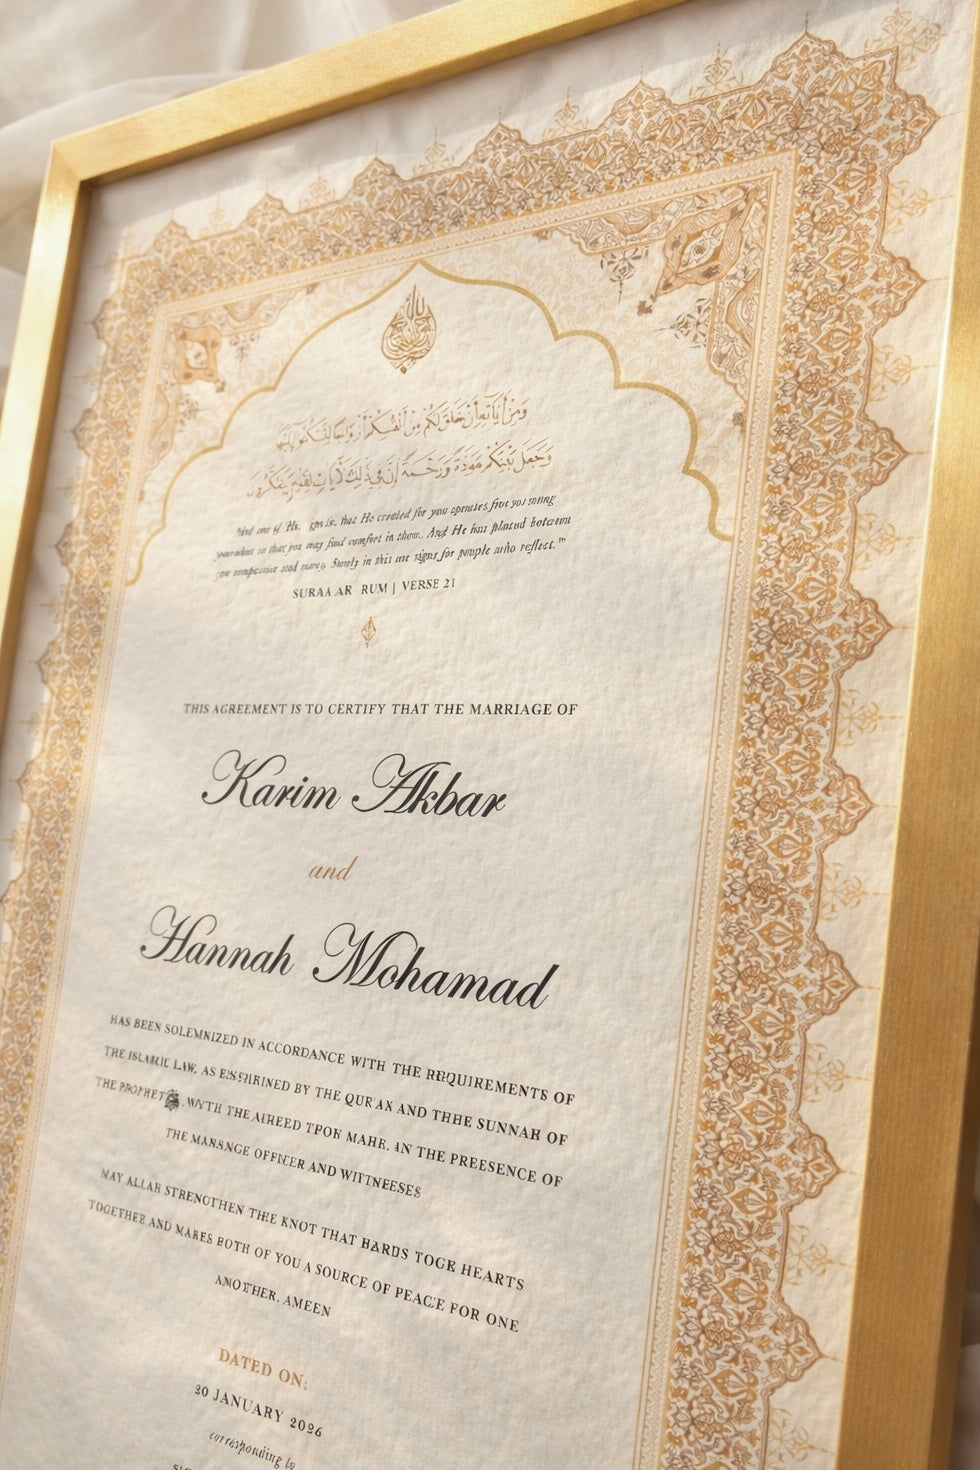 وَمِنْ آيَاتِهِ أَنْ خَلَقَ لَكُم مِّنْ أَنفُسِكُمْ أَزْوَاجًا
وَجَعَلَ بَيْنَكُم مَّوَدَّةً وَرَحْمَةً إِنَّ فِي ذَلِكَ لَآيَاتٍ
"And one of His is, that He created for you spouses from
so that you may find comfort in them. And He has placed between
and mercy. Surely in this are signs for people who reflect."
SURAA AR RUM | VERSE 21
THIS AGREEMENT IS TO CERTIFY THAT THE MARRIAGE OF
Karim Akbar
and
Hannah Mohamad
HAS BEEN SOLEMNIZED IN ACCORDANCE WITH THE REQUIREMENTS OF
THE ISLAMIC LAW, AS BY THE QUR AN AND THHE SUNNAH OF
THE PROPHET THE TPON MAHR. IN THE PREESENCE OF
THE MANSNGE OFFICER AND WITTNEESES
MAY ALLAH STRENGTHEN THE KNOT THAT BARDS TOGR HEARTS
TOGETHER AND MAKES BOTH OF YOU A SOURCE OF PEACE FOR ONE
ANOTHER, AMEEN
DATED ON:
20 JANUARY 2026
corresponding to